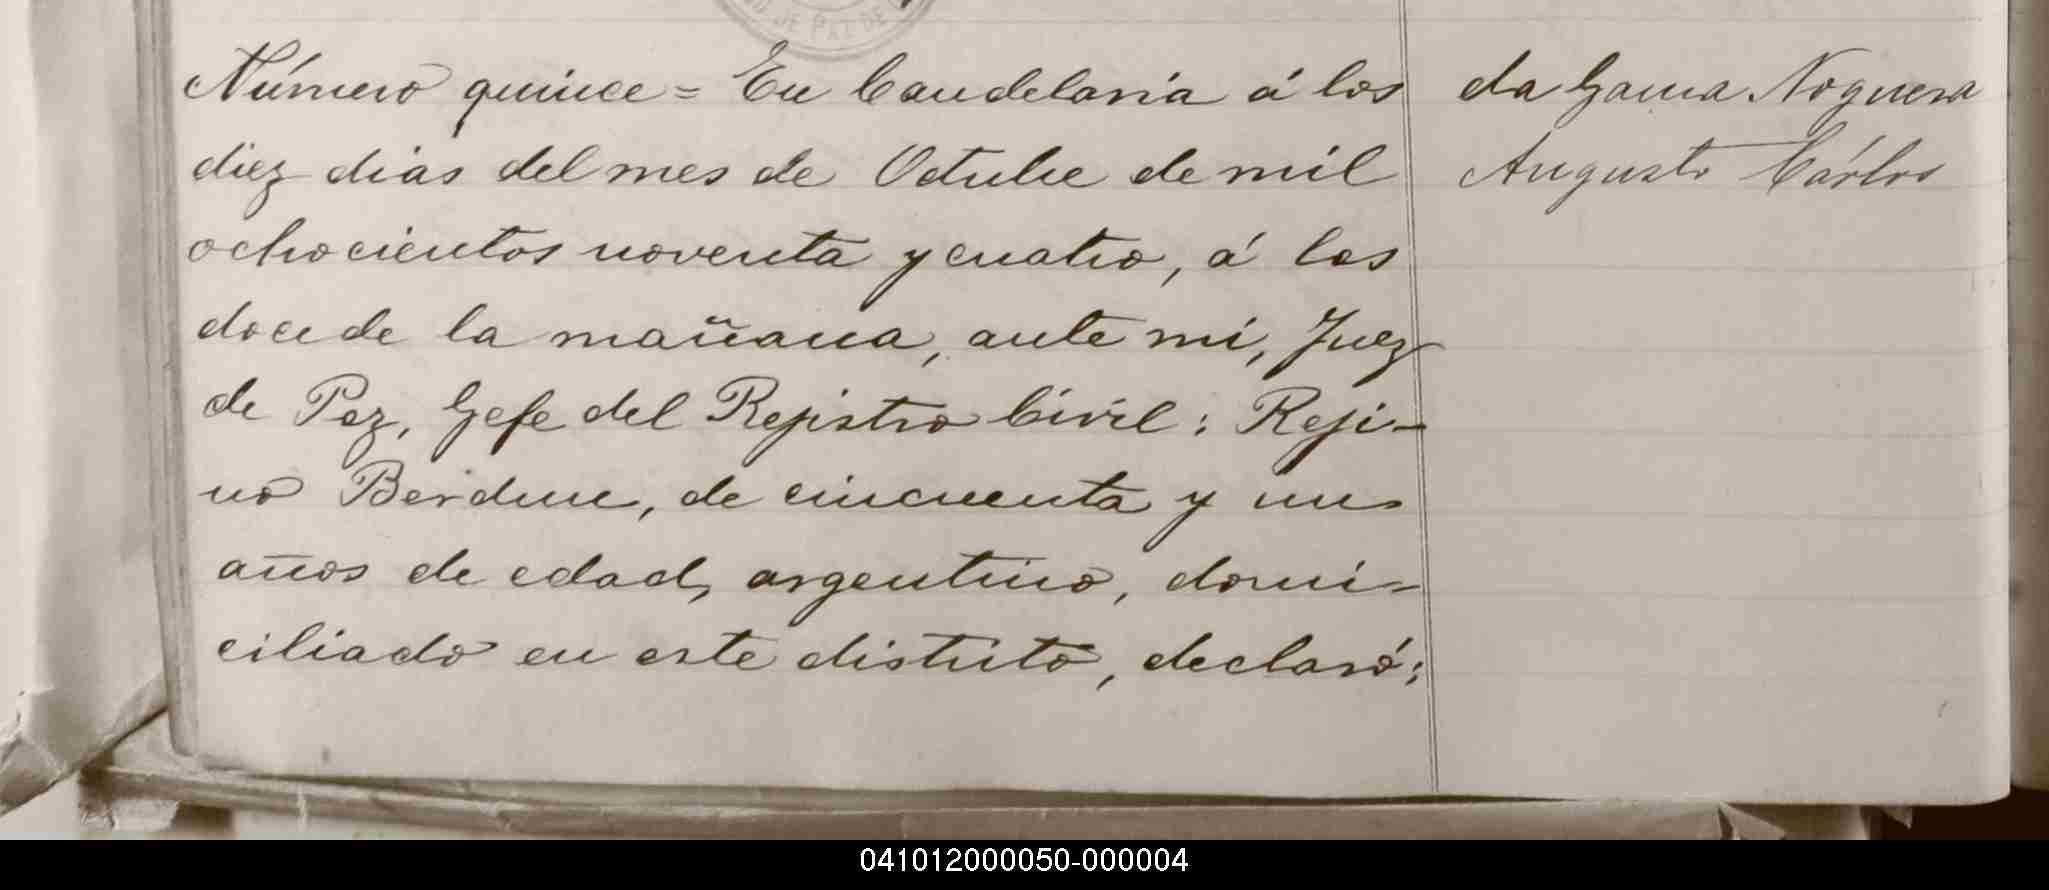 Número quince = En Candelaria á los
diez dias del mes de Octubre de mil
ochocientos noventa y cuatro, á las
doce de la mañana, ante mi, Juez
de Paz, Gefe del Registro Civil: Reji-
no Berdun, de cincuenta y un
años de edad, argentino, domi-
ciliado en este distrito, declaró:
da Gama Noguera
Augusto Cárlos
DE PAZ DE
041012000050-000004